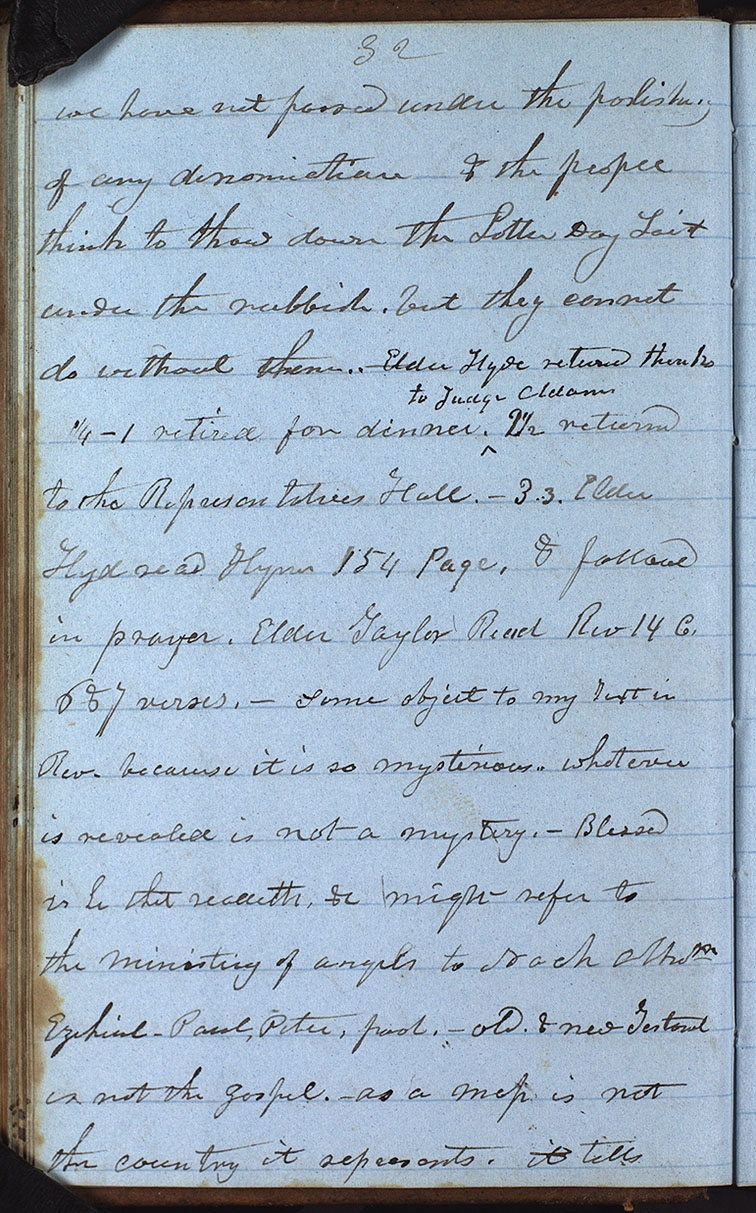 32
we have not passed under the polishing
of any denomination & the people
think to thow down the Latter Day Saint
under the rubbish. but they cannot
do without them.. – Elder Hyde returned thanks
to Judge Adams
1/4 – 1 retired for dinner. ^ 2 1/2 returned
to the Representatives Hall. – 3.3. Elder
Hyd read Hymn 154 Page, & followed
in prayer. Elder Taylor Read Rev 14 C.
6 & 7 verses. – some object to my Text in
Rev. because it is so mysterious.. whatever
is revealed is not a mystery. – Blessed
is he that readeth, &c might refer to
the ministring of angels to Noah Abrm
Ezekiel – Paul, Peter, – old. & new Testamt
is not the gospel. – as a map is not
the country it represents. it tells